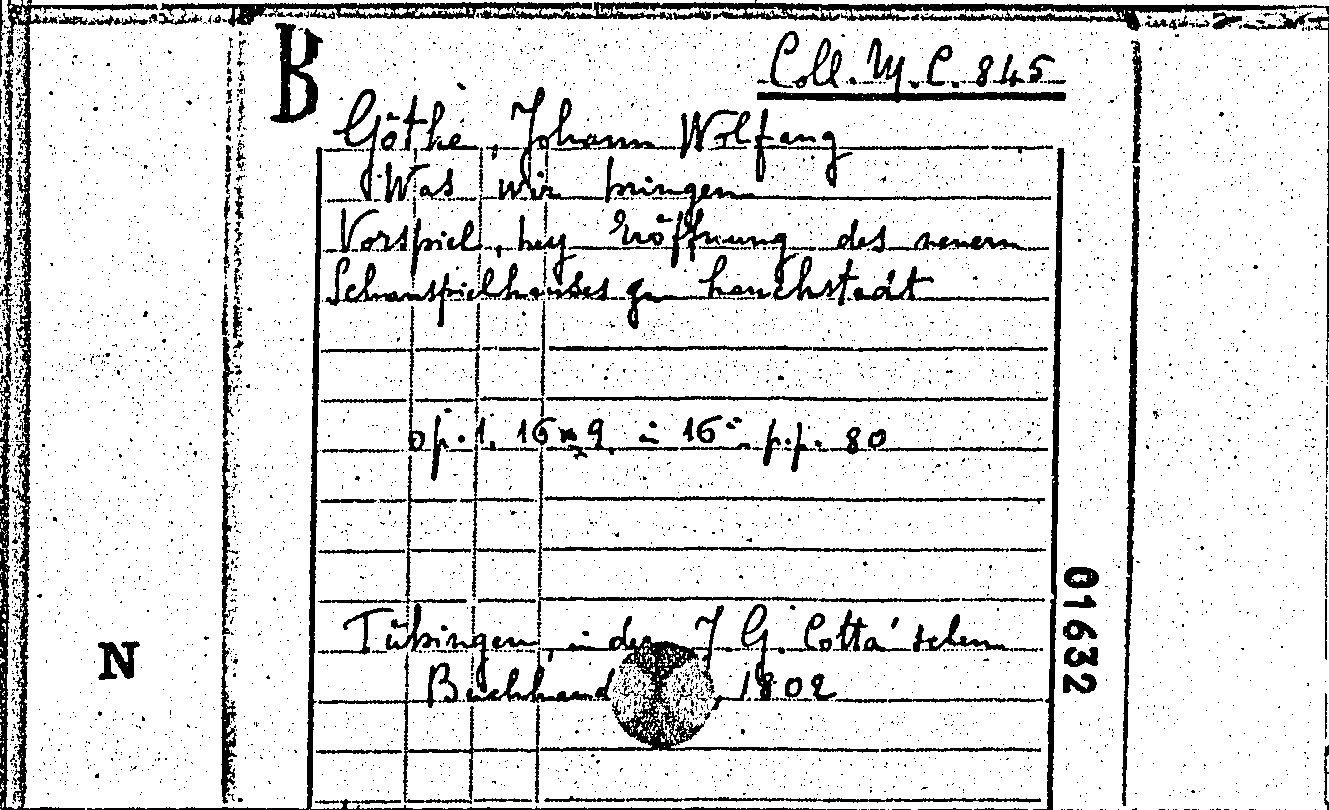 B
Coll. M. C. 845
Göthe, Johann Wolfang
Was wir bringen
Vorspiel, bey Eröffnung des neuern
Schauspielhauses zu Lauchstadt
op. 1. 16 9. in 16° p.p. 80
01632
Tübingen, in der J G. Cotta'schen
N
Buchhand 1802